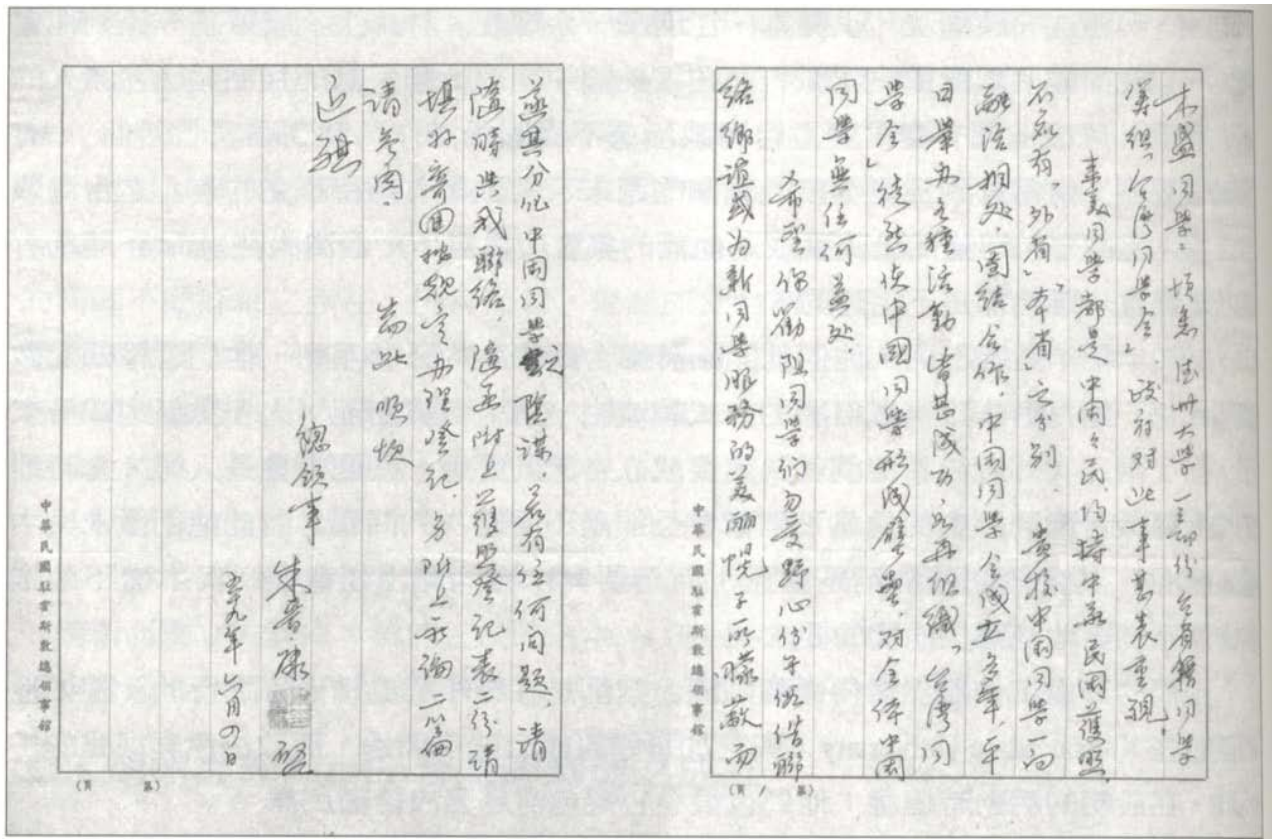 木盛同學：頃悉德州大學一部份台省籍同學
籌組「台灣同學会」，政府对此事甚表重視，
来美同學都是中國國民，均持中華民國護照，
不宜有「外省」「本省」之分別。貴校中國同學一向
融洽相处，團結合作，中國同學会成立多年，平
日舉办各種活動皆甚成功，如再組織「台灣同
學会」徒然使中國同學形成壁壘，对全体中國
同學無任何益处。
希望你勸阻同學们勿受野心份子假借聯
絡鄉誼或为新同學服務的美麗幌子所矇蔽而
中華民國駐休斯敦總領事館
(頁 1 第)
遂其分化中國同學之陰謀，若有任何问题，请
隨時與我聯絡，隨函附上護照登记表二份请
填好寄回按規定办理登记，另附上 二篇
请参阅，耑此順頌
近祺
總領事 朱晋康 啓
五九年六月四日
中華民國駐休斯敦總領事館
(頁 第)